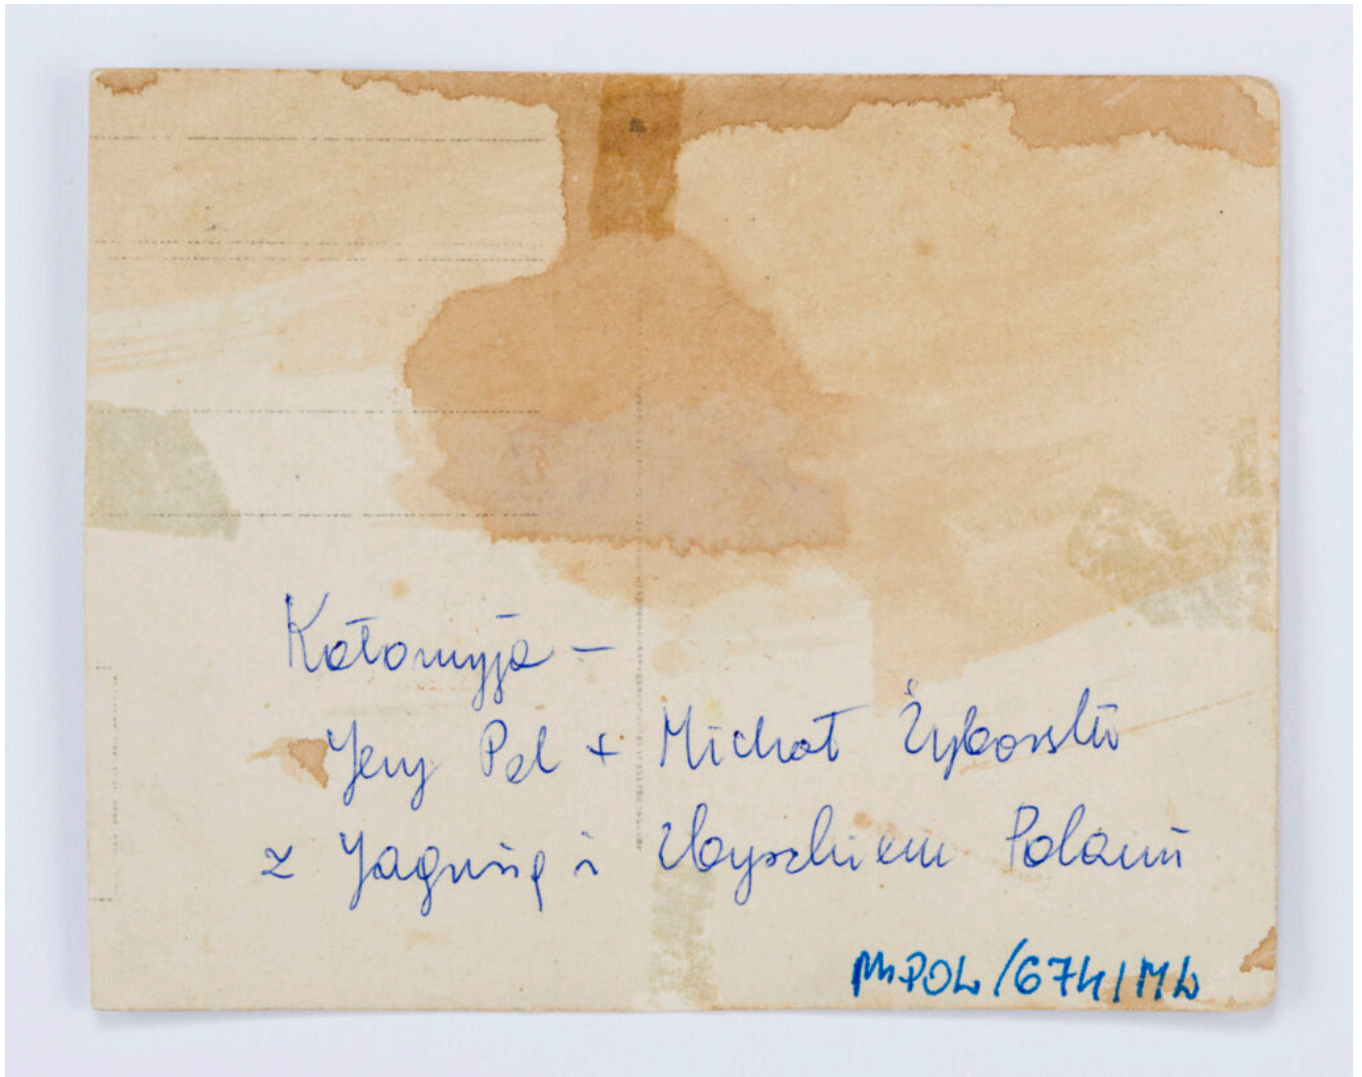 Kołomyja –
Jerzy Pel + Michał Żyborski
z Jagusią i Zbyszkiem Polami
MPOL/674/ML